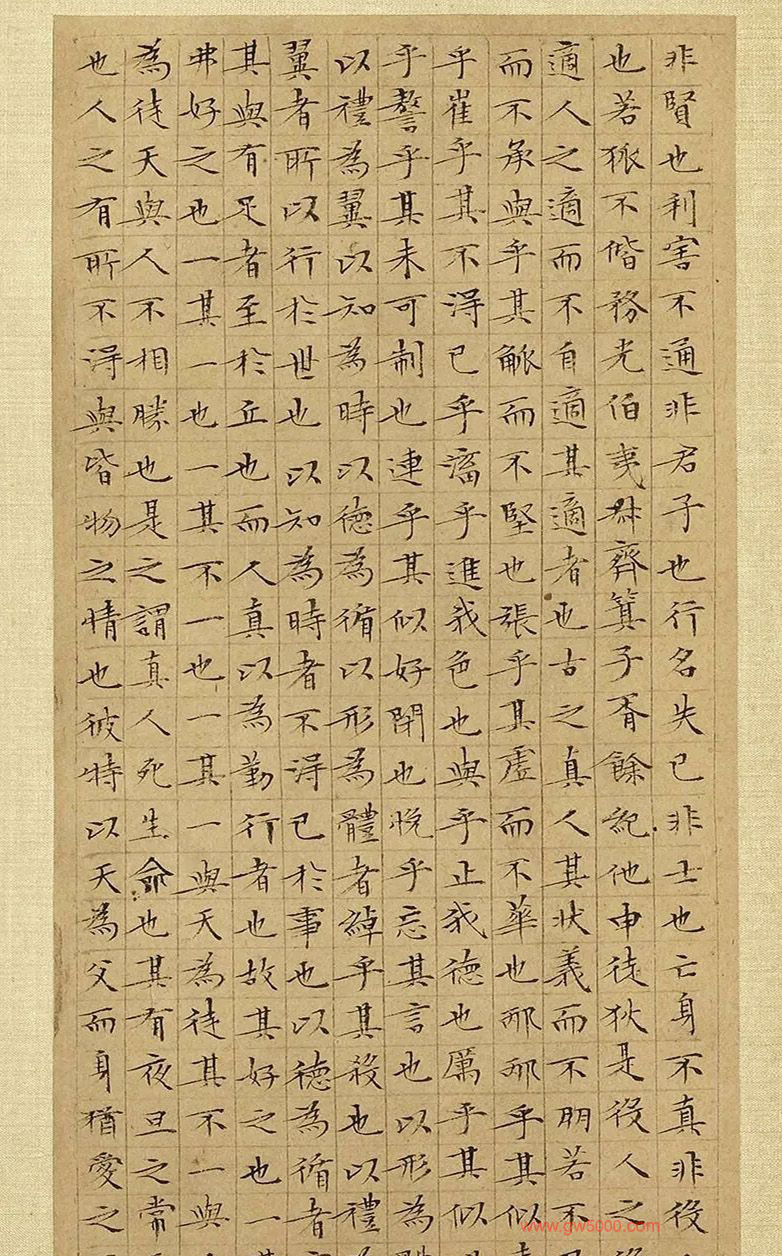 非賢也利害不通非君子也行名失已非士也亡身不真非役
也若狐不偕務光伯夷叔齊箕子胥餘紀他申徒狄是役人之
適人之適而不自適其適者也古之真人其狀義而不朋若不
而不承與乎其觚而不堅也張乎其虛而不華也邴邴乎其似
乎崔乎其不得已乎滀乎進我色也與乎止我德也厲乎其似
乎謷乎其未可制也連乎其似好閉也悅乎忘其言也以形為
以禮為翼以知為時以德為循以形為體者綽乎其殺也以禮
翼者所以行於世也以知為時者不得已於事也以德為循者
其與有足者至於丘也而人真以為勤行者也故其好之也一
弗好之也一其一也一其不一也一其一與天為徒其不一與
為徒天與人不相勝也是之謂真人死生命也其有夜旦之常
也人之有所不得與皆物之情也彼特以天為父而身猶愛之
www.gw5000.com